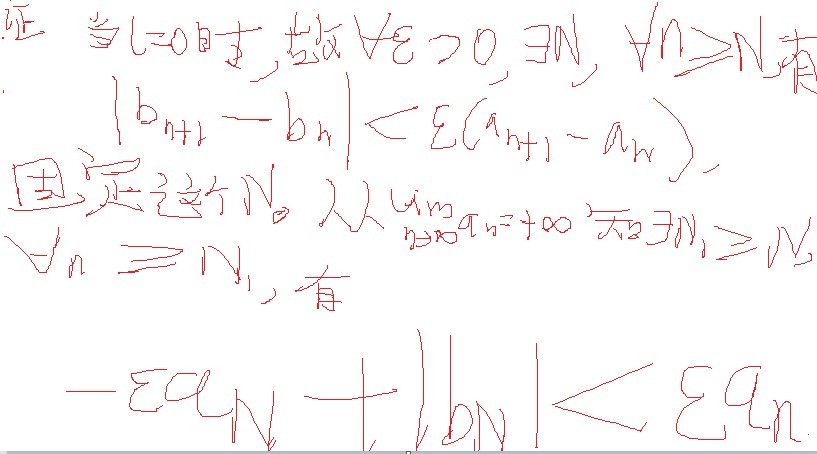 证 当l=0时, 故∀ε>0, ∃N, ∀n≥N,有
|b_{n+1}-b_n|<ε(a_{n+1}-a_n).
固定这个N。从lim_{n→∞}a_n=+∞知∃N_1≥N,
∀n≥N_1, 有
-εa_N+|b_N|<εa_n.